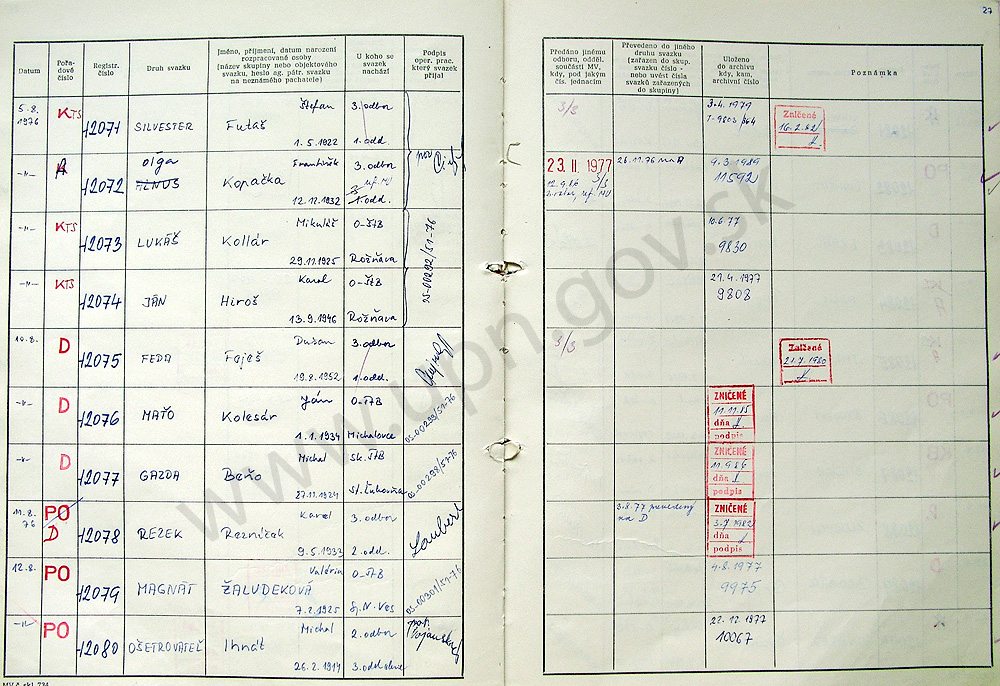 27
Datum
Pořadové číslo
Registr. číslo
Druh svazku
Jméno, příjmení, datum narození
rozpracované osoby
(název skupiny nebo objektového
svazku, heslo ag. pátr. svazku
na neznámého pachatele)
U koho se
svazek
nachází
Podpis
oper. prac.
který svazek
přijal
Předáno jinému
odboru, odděl.
součásti MV,
kdy, pod jakým
čís. jednacím
Převedeno do jiného
druhu svazku
(zařazen do skup.
svazku číslo -
nebo uvést čísla
svazků zařazených
do skupiny)
Uloženo
do archivu
kdy, kam,
archivní číslo
Poznámka
5.8. 1976 KTS 12071 SILVESTER Štefan Futáš 1.5.1922 3. odbor 1. odd.
S/3 3.4.1979 Zničené 16.2.82
-"- A 12072 Oľga František Kopačka 12.12.1932 3. odbor 1. odd.
23 II. 1977 9.3.1989 11592
-"- KTS 12073 LUKÁŠ Mikuláš Kollár 29.11.1925 O-ŠTB Rožňava
10.6.77 9830
-"- KTS 12074 JÁN Karol Hiroš 13.9.1946 O-ŠTB Rožňava
21.4.1977 9808
10.8. D 12075 FEDA Dušan Faješ 19.8.1952 3. odbor 1. odd.
S/3 Zničené 21.7.1980
-"- D 12076 MAŤO Ján Kolesár 1.1.1934 O-ŠTB Michalovce
ZNIČENÉ 11.11.85 dňa podpis
-"- D 12077 GAZDA Michal Beňo 27.11.1924 Sk. ŠTB St. Ľubovňa
ZNIČENÉ 11.9.86 dňa podpis
11.8. 76 PO D 12078 REZEK Karol Rezníček 9.5.1933 3. odbor 2. odd. Loubert
3.8.77 prevedený na D ZNIČENÉ 3.7.1982 dňa podpis
12.8. PO 12079 MAGNÁT Valéria ŽALUDEKOVÁ 7.2.1925 O-ŠTB Sp. N. Ves
4.8.1977 9975
-"- PO 12080 OŠETROVATEĽ Michal Ihnát 26.2.1914 2. odbor
22.12.1977 10067
www.upn.gov.sk